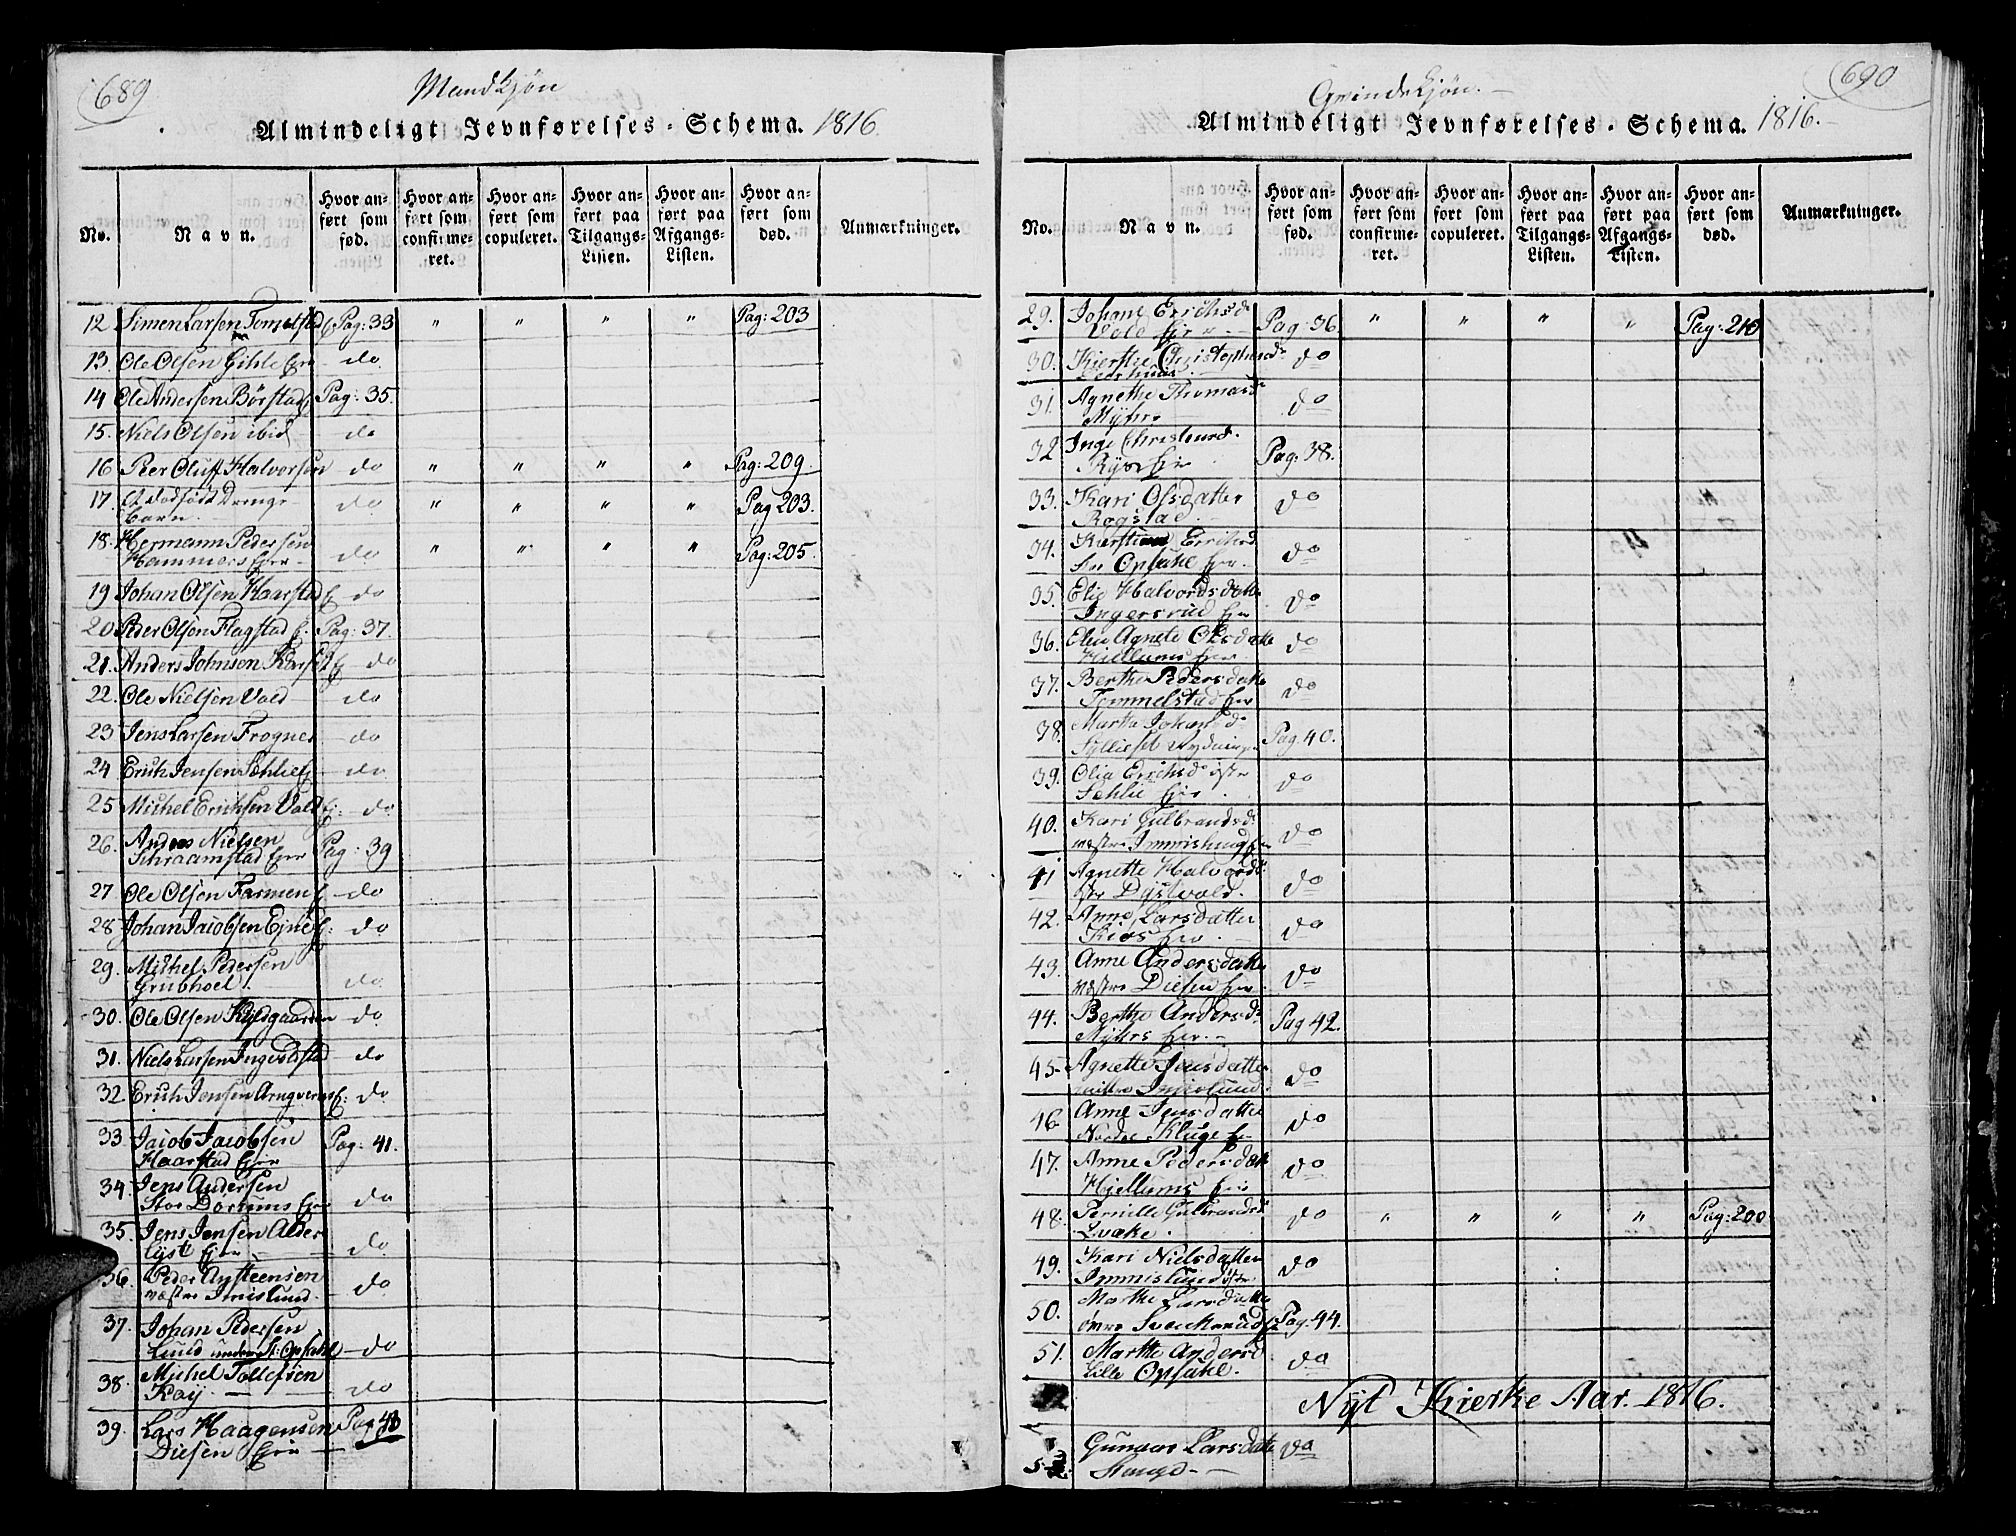 689
Mandkjön
Almindeligt Jevnførelses-Schema. 1816
No.
Navn.
Hvor anført som fød.
Hvor anført som confirmeret.
Hvor anført som copuleret.
Hvor anført paa Tilgangs-Listen.
Hvor anført paa Afgangs-Listen.
Hvor anført som død.
Anmærkninger.
12 Simen Larsen Tomelstad E Pag: 33 " " " " Pag: 203
13. Ole Olsen Gihle Eie do
14 Ole Andersen Börstad Pag: 35.
15. Niels Olsen ibid do
16 Peer Oluff Halvorsen do " " " " Pag: 209.
17. Et dödfödt Drenge do " " " " Pag 203.
Barn.
18. Hermann Pedersen
Hammers Eie do " " " " Pag: 205.
19 Johan Olsen Haarstad E do
20 Peder Olsen Flagstad E. Pag: 37.
21. Anders Johnsen E do
22. Ole Nielsen Vold do
23 Jens Larsen Frogner do
24 Erich Jensen Sehlie E do
25 Michel Erichsen Vold E: do
26. Andreas Nielsen Pag: 39
Schraamstad Eie
27 Ole Olsen Farmen E do
28 Johan Jacobsen Ejne E: do
29. Michel Pedersen
Grubhoel. do
30. Ole Olsen do
31. Niels Larsen do
32. Erich Jensen Arngvern E: do
33. Jacob Jacobsen Pag: 41.
Haarstad Eie
34. Jens Andersen
Stor Dörums Eie do
35. Jens Jensen Alder
lyst Eie do
36. Peder Aysteensen
væstre Imislund. do
37. Johan Pedersen
Lund under St: Opsahl do
38. Michel Tollefsen
Kaij do
39. Lars Haagensen Pag 43
Diesen Eie
690
Qvindekjön.
Almindeligt Jevnførelses-Schema. 1816.
No.
Navn.
Hvor anført som fød.
Hvor anført som confirmeret.
Hvor anført som copuleret.
Hvor anført paa Tilgangs-Listen.
Hvor anført paa Afgangs-Listen.
Hvor anført som død.
Anmærkninger.
29. Johane Erichsd
Vold Eie Pag: 36 " " " " Pag: 210
30. Kierstie Christophersd do
31. Agnethe Thomasd do
Myhre
32 Inge Christensd.
Eie Pag: 38.
33. Kari Olsdatter do
Rogstad
34. Kierstine Erichsd do
Opsahl Eie
35. Elie Halvordsdatter do
Ingersrud Eie
36. Elen Agnete Olsdatte do
Hjellums Eie
37. Berthe Pedersdatte do
Tommelstad Eie
38. Marthe Johansd Pag. 40.
39. Olia Erichsd östre do
Sehlie Eie
40. Kari Gulbrandsd. do
væstre Immishaug Eie
41 Agnette Halvordsd do
östre Dystvold.
42. Anne Larsdatter do
Kiös Eie
43. Anne Andersdatte do
væstre Diesen Eie
44. Berthe Andersd Pag 42.
Myhrs Eie
45. Agnette Jensdatter do
Imislund.
46. Anne Jensdatter do
Nordre Kluge E
47. Anne Pedersdatt do
Hjellums Eie
48. Pernille Gulbrandsd do " " " " Pag: 200
Qvæke.
49. Kari Nielsdatter do
Immislund östre
50. Marthe Larsdatter
övre Svenkerud E Pag. 44.
51. Marthe Andersd do
Lille Opsahl.
Nyt Kierke Aar. 1816.
52. Gunnor Larsdatte do
Stange